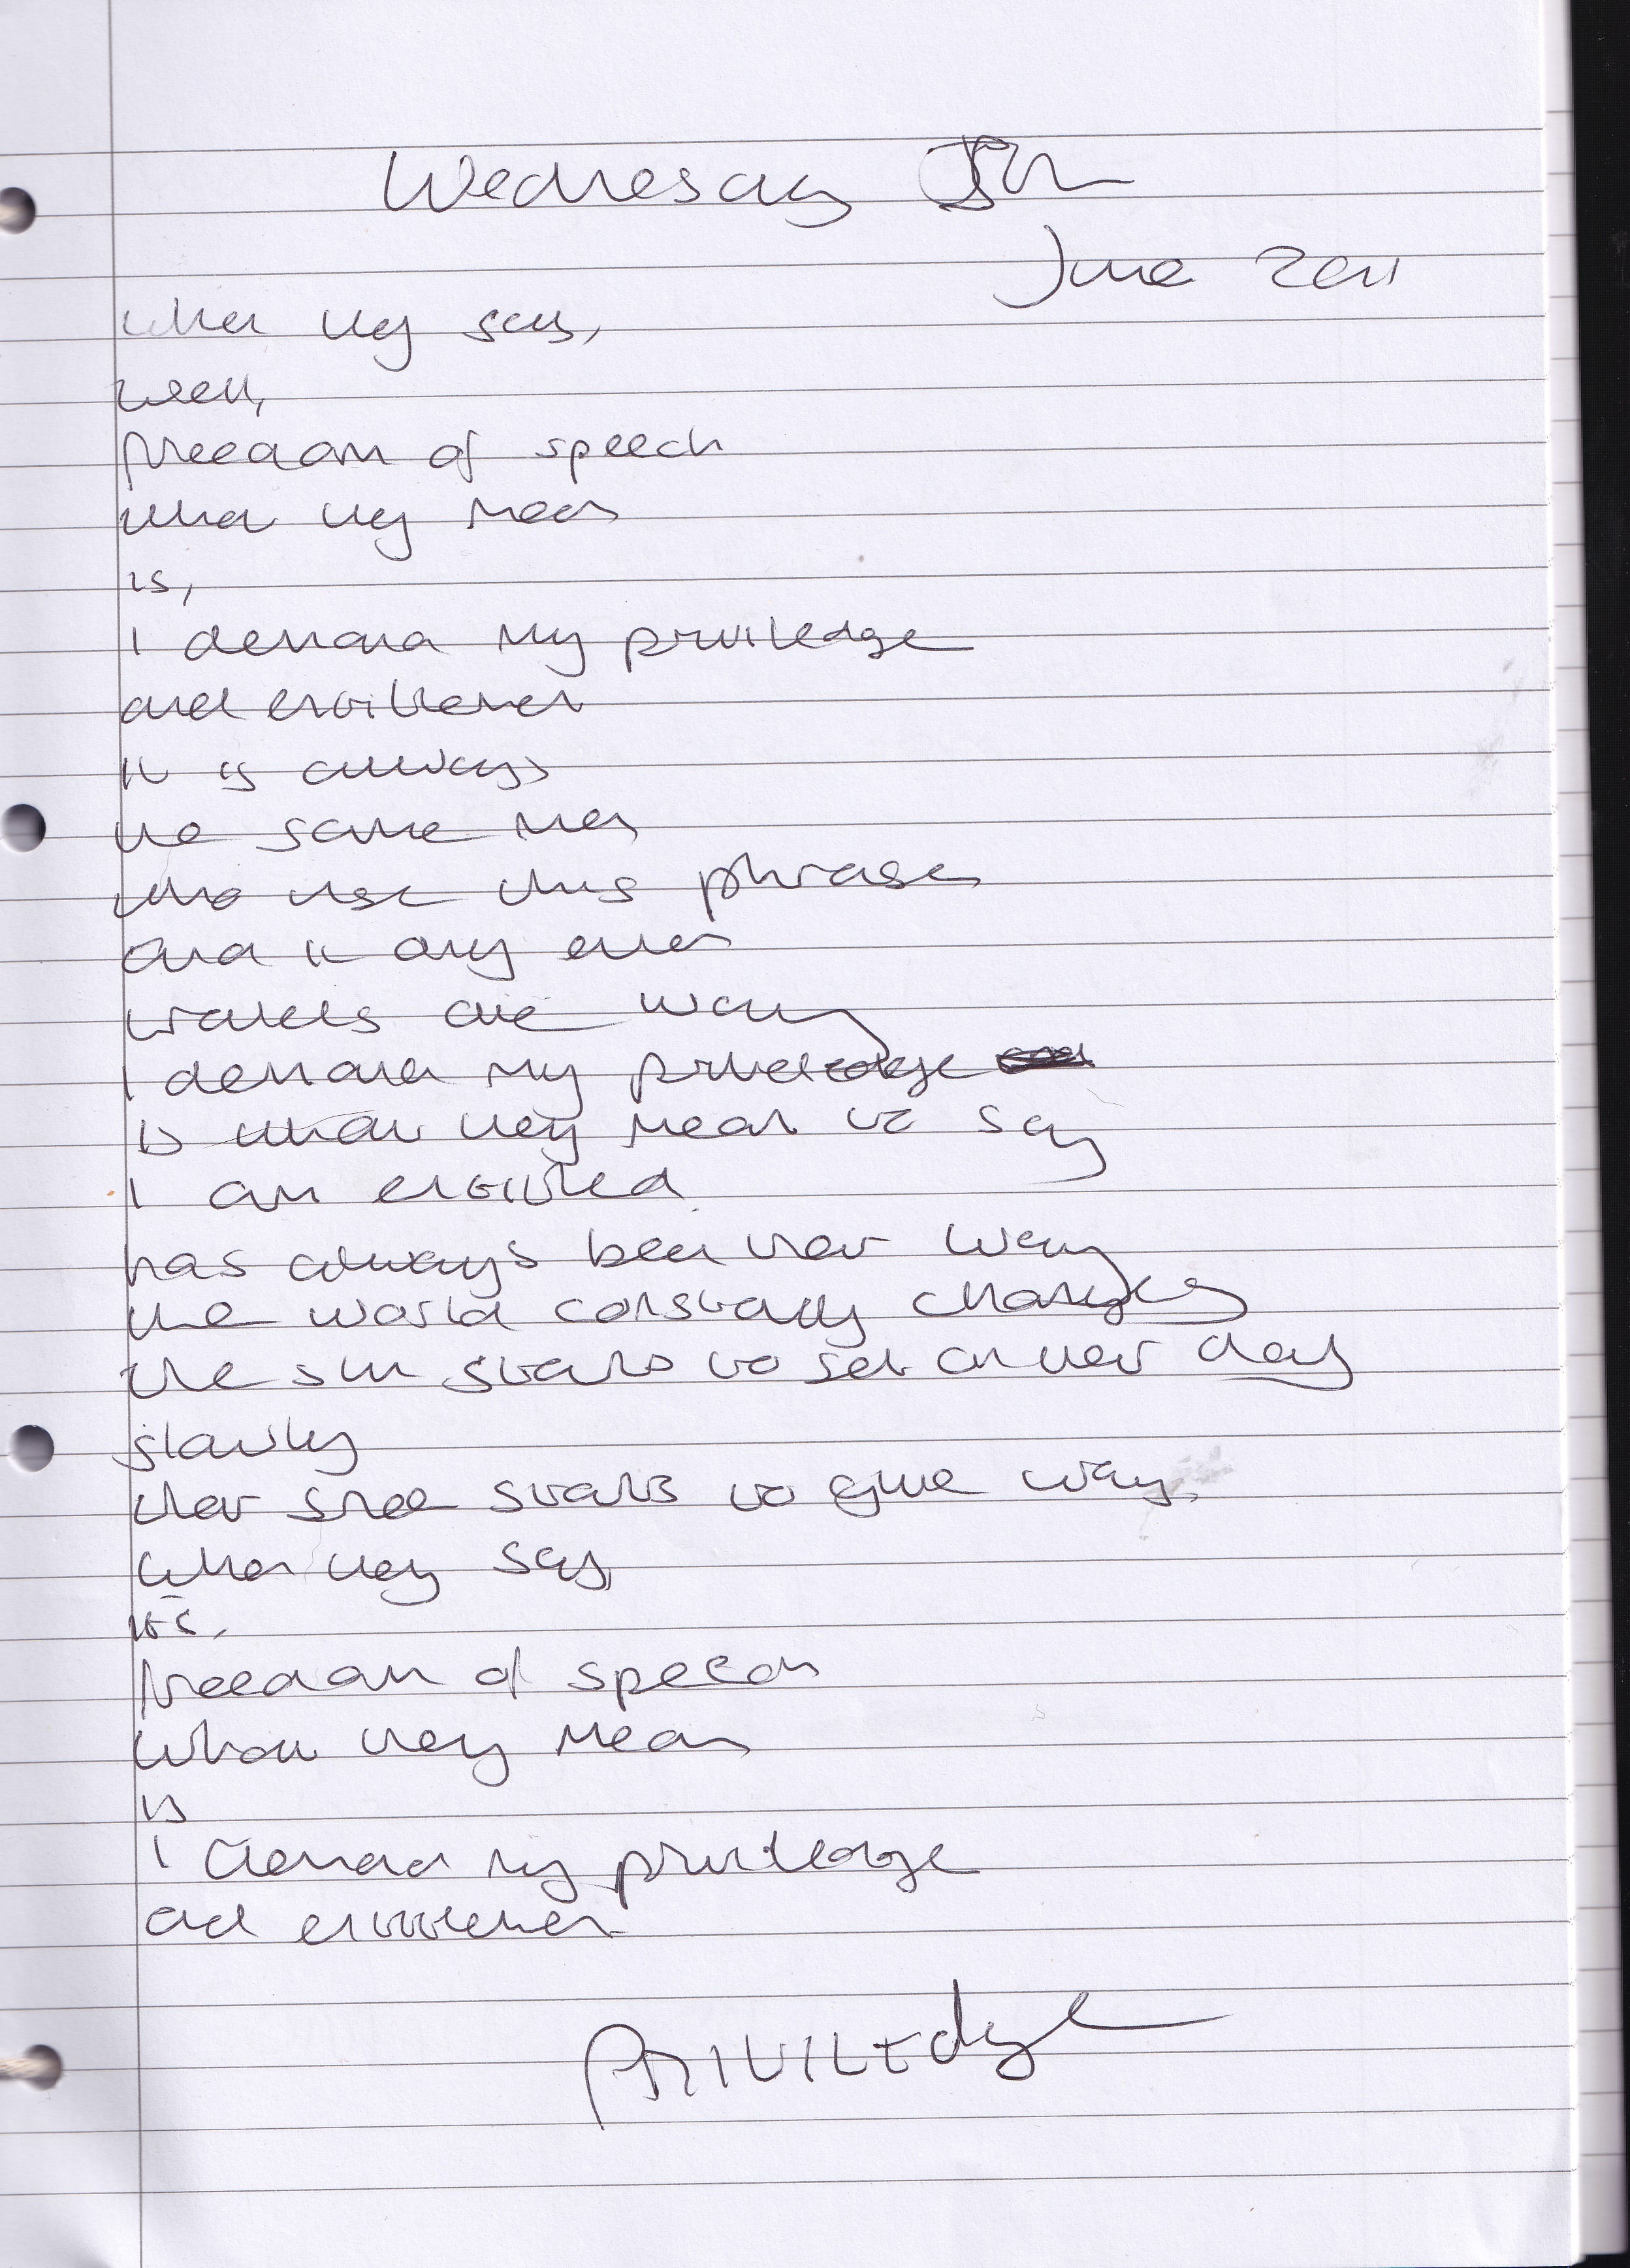 Wednesday 8th
June 2011
when they say,
well,
freedom of speech
what they mean
is,
I demand my priviledge
and entitlement
it is always
the same men
who use this phrase
and it only ever
travels one way
I demand my priviledge
is what they mean to say
I am entitled
has always been their way
the world constantly changing
the sun starts to set on their day
slowly
their starts to give way.
when they say,
it's,
freedom of speech
what they mean
is
I demand my priviledge
and entitlement
Priviledge